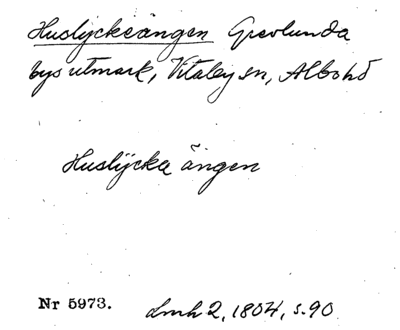 Huslyckeängen Grevlunda
bys utmark, Vitaby sn, Albo hd
Huslÿcka ängen
Nr 5973. Lmh 2, 1804, s. 90